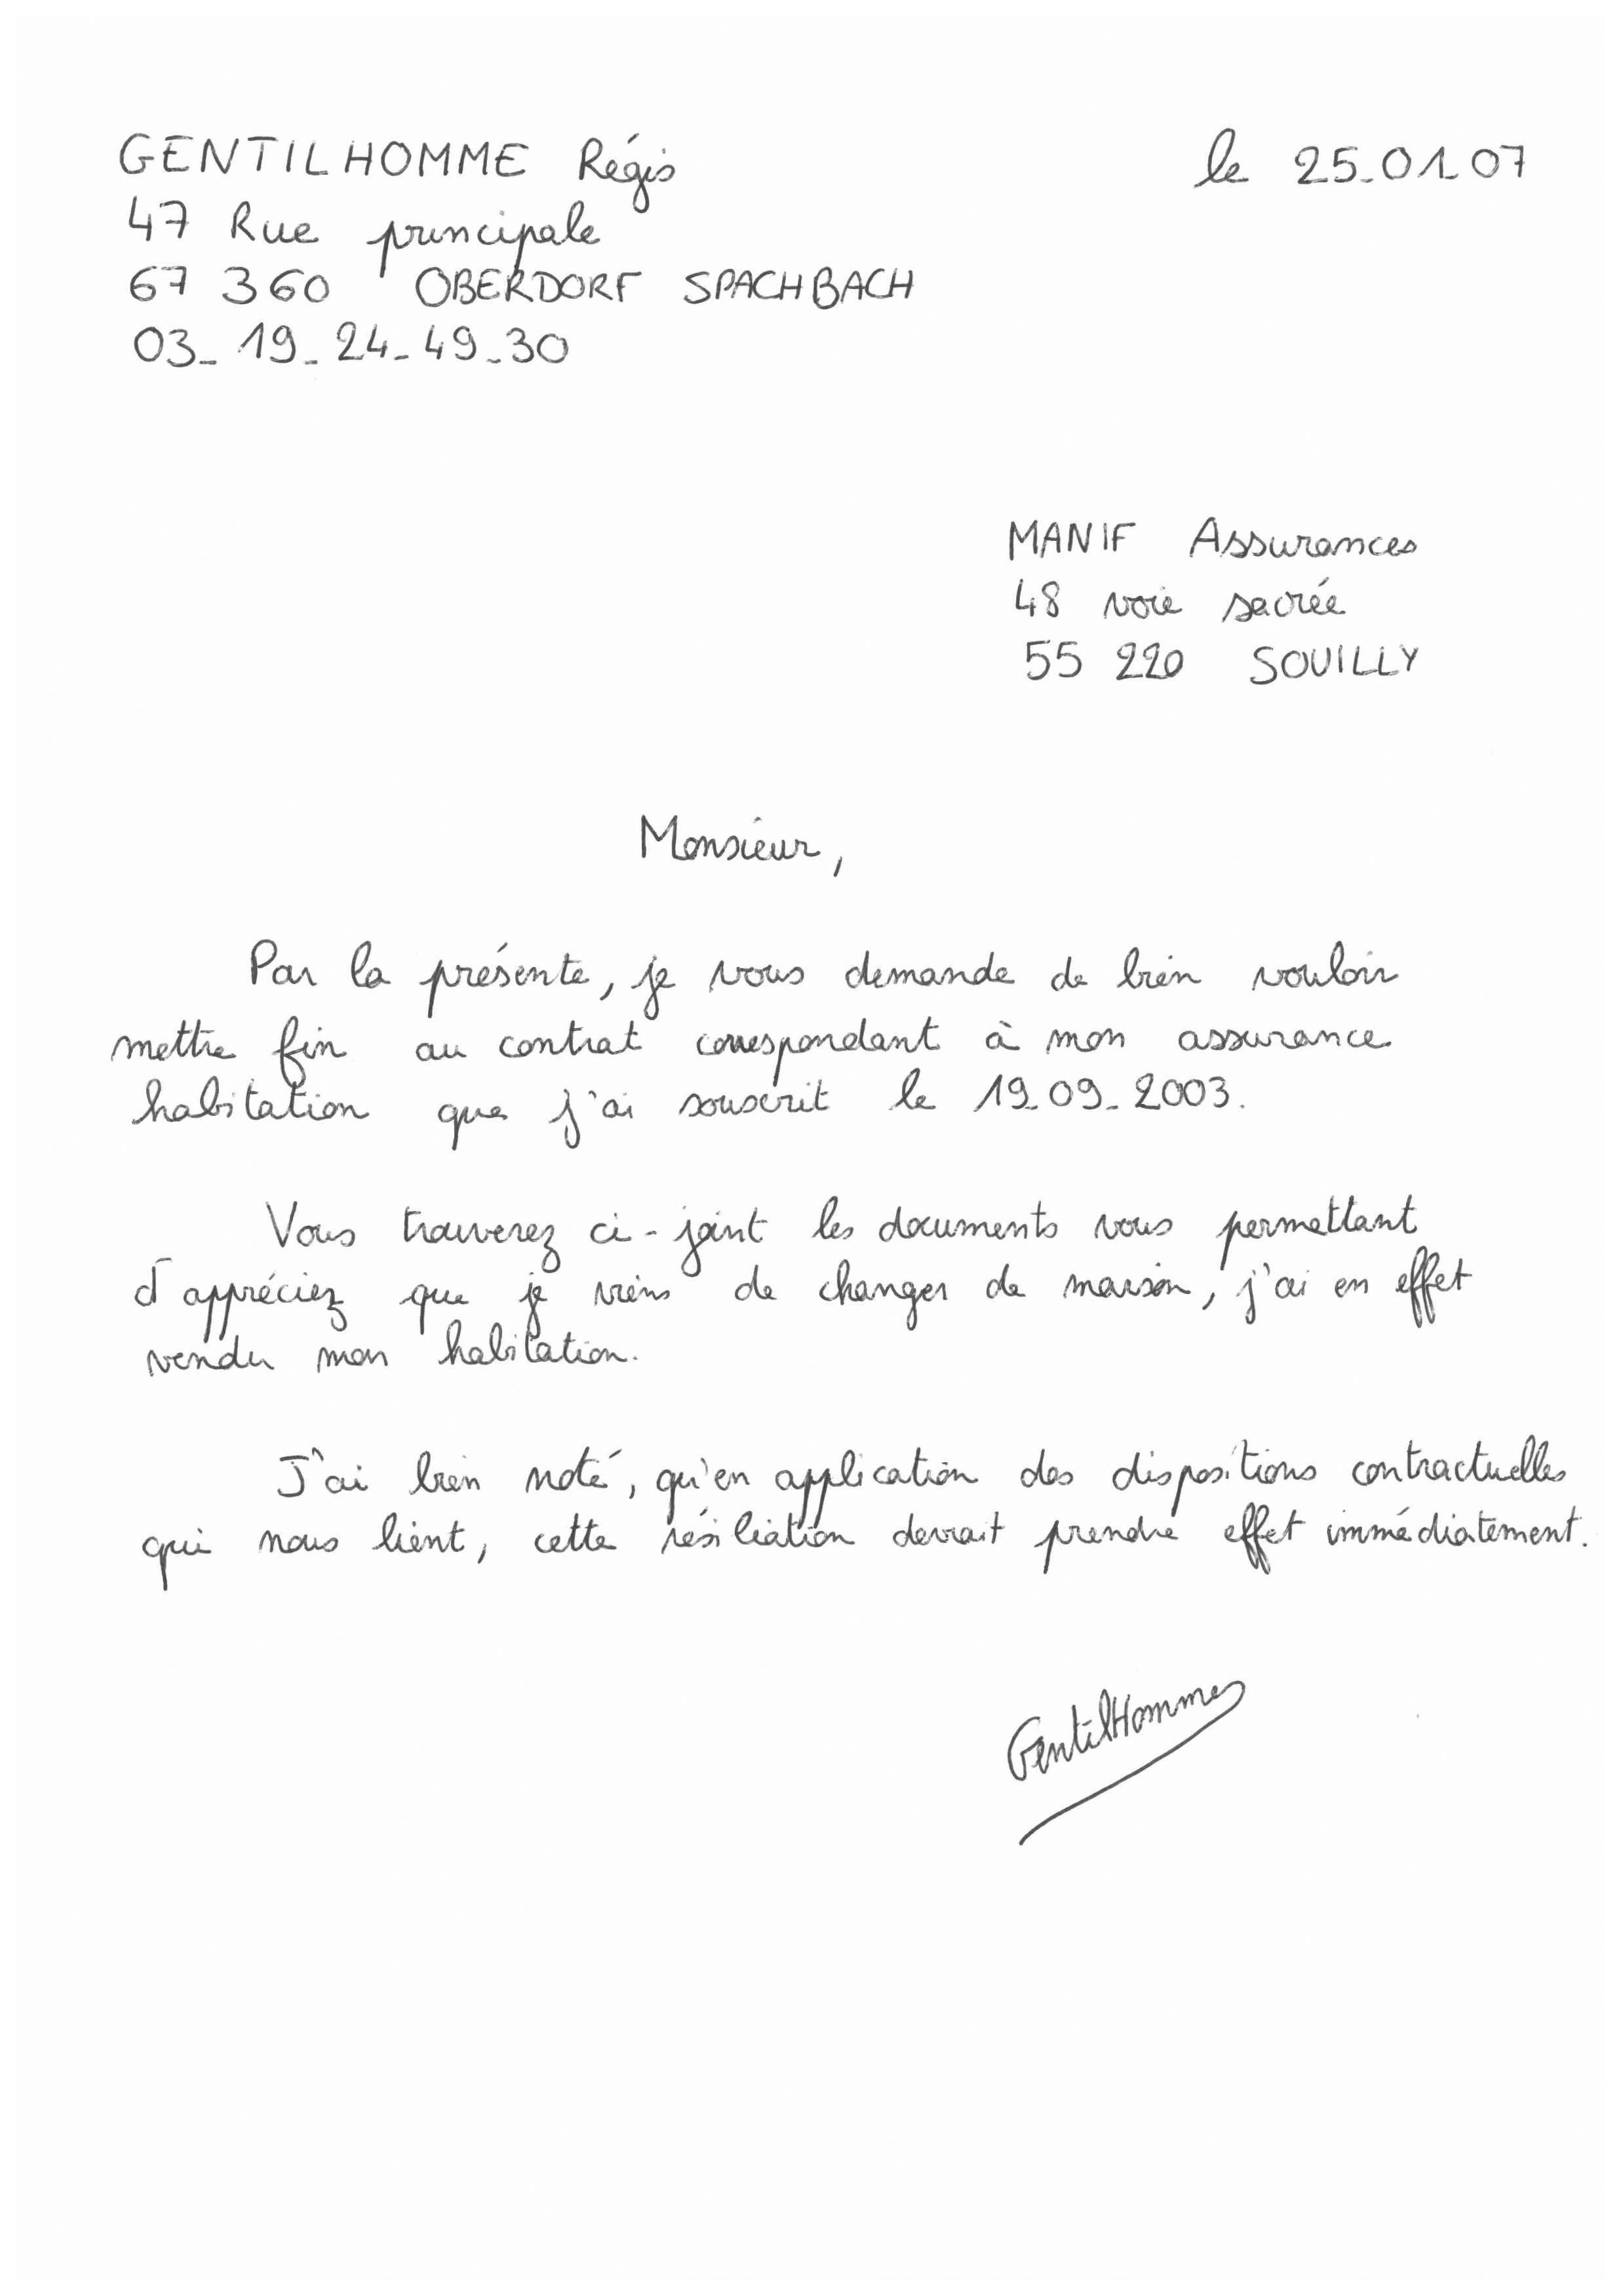 GENTILHOMME Régis
le 25.01.07
47 Rue principale
67 360 OBERDORF SPACHBACH
03_19_24_49_30
MANIF Assurances
48 voie sacrée
55 220 SOUILLY
Monsieur,
Par la présente, je vous demande de bien vouloir
mettre fin au contrat correspondant à mon assurance
habitation que j'ai souscrit le 19_09_2003.
Vous trouverez ci-joint les documents vous permettant
d'appréciez que je viens de changer de maison, j'ai en effet
vendu mon habitation.
J'ai bien noté, qu'en application des dispositions contractuelles
qui nous lient, cette résiliation devrait prendre effet immédiatement.
GentilHomme